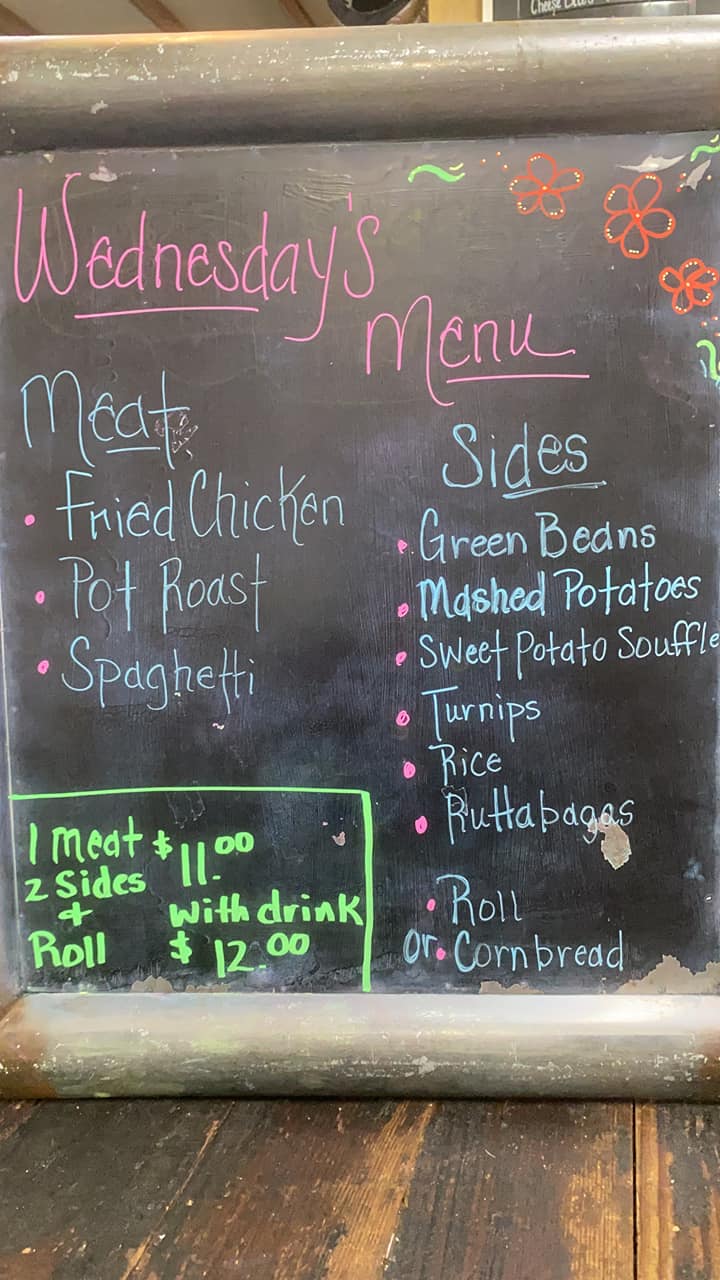 Wednesday's
Menu
Meat
• Fried Chicken
• Pot Roast
• Spaghetti
Sides
• Green Beans
• Mashed Potatoes
• Sweet Potato Souffle
• Turnips
• Rice
• Ruttabagas
• Roll
or • Cornbread
1 Meat $11.00
2 Sides
+ with drink
Roll $12.00